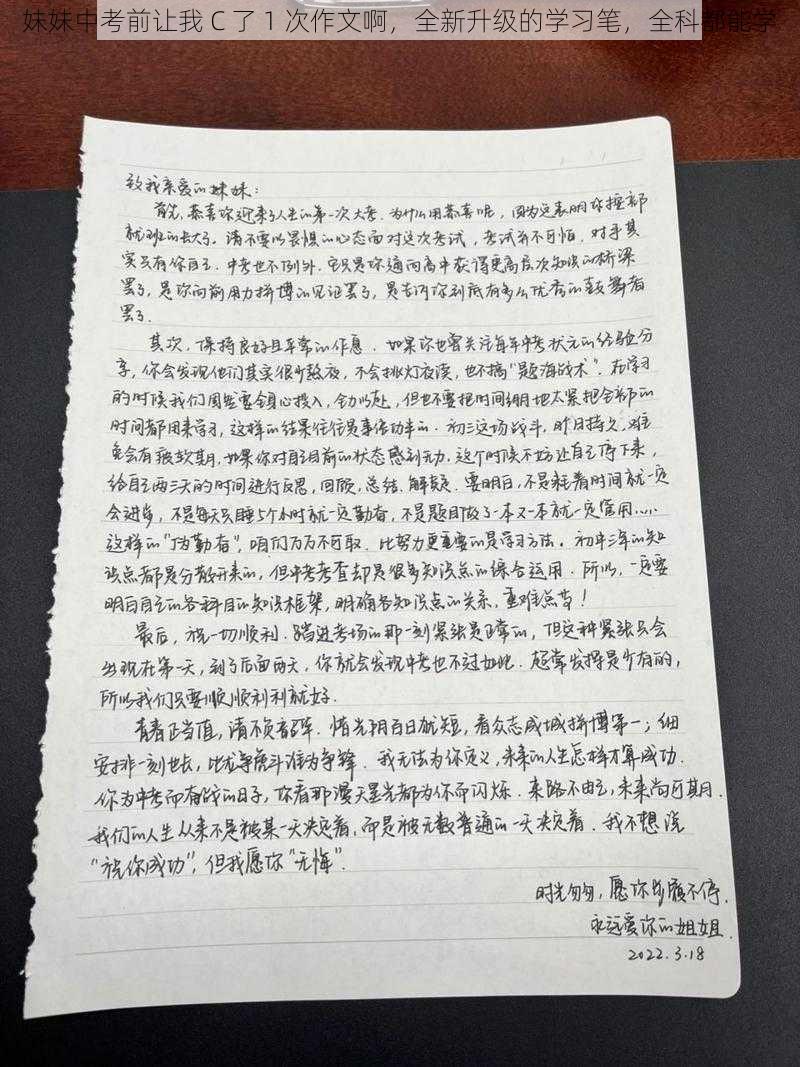 妹妹中考前让我 C 了 1 次作文啊，全新升级的学习笔，全科都能学
致我亲爱的妹妹：
首先，恭喜你迎来了人生的第一次大考。为什么用恭喜呢，因为这表明你按部
就班的长大了。请不要以畏惧的心态面对这次考试，考试并不可怕，对手其
实只有你自己。中考也不例外，它只是你通向高中获得更高层次知识的桥梁
罢了，是你向前用力拼博的见证罢了，是告诉你到底有多么优秀的鼓舞者
罢了。
其次，保持良好且平常的作息。如果你也曾关注每年中考状元的经验分
享，你会发现他们其实很少熬夜，不会挑灯夜读，也不搞“题海战术”。在学习
的时候我们固然要全身心投入，全力以赴，但也不要把时间绷地太紧把全部的
时间都用来学习，这样的结果往往是事倍功半的。初三这场战斗，时日持久，难
免会有疲软期，如果你对自己目前的状态感到无力，这个时候不妨让自己停下来，
给自己两三天的时间进行反思，回顾，总结，解疑。要明白，不是耗着时间就一定
会进步，不是每天只睡5个小时就一定勤奋，不是题目做了一本又一本就一定管用……
这样的“伪勤奋”，咱们万万不可取。比努力更重要的是学习方法。初中三年的知
识点都是分散开来的，但中考考查却是很多知识点的综合运用。所以，一定要
明白自己的各科目的知识框架，明确各知识点的关系，重难点等！
最后，祝一切顺利。踏进考场的那一刻紧张是正常的，但这种紧张只会
出现在第一天，到了后面两天，你就会发现中考也不过如此。超常发挥是少有的，
所以我们只要顺顺利利就好。
青春正当值，请不负韶华。惜光阴百日犹短，看众志成城拼博第一；细
安排一刻也长，比龙争虎斗谁为争锋。我无法为你定义，未来的人生怎样才算成功。
你为中考而奋战的日子，你看那漫天星光都为你而闪烁。来路不由己，未来尚可其月．
我们的人生从来不是被某一天决定着，而是被无数普通的一天决定着。我不想说
“祝你成功”，但我愿你“无悔”．
时光匆匆，愿你步履不停．
永远爱你的姐姐．
2022.3.18